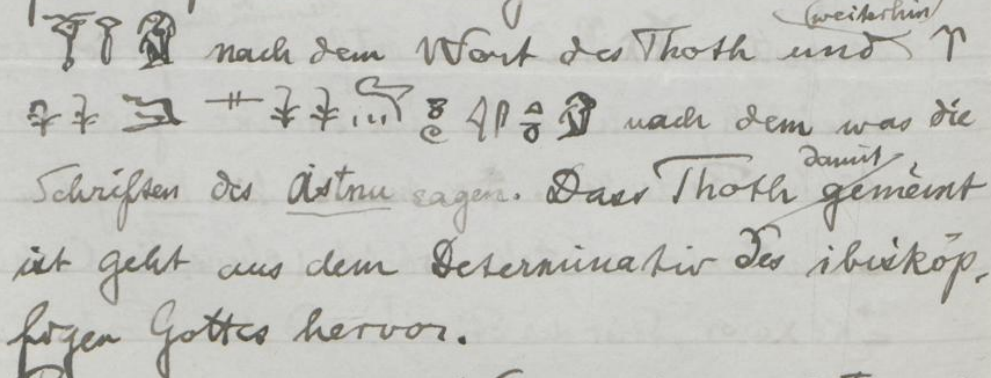 (weiterhin)
nach dem Wort des Thoth und
nach dem was die
Schriften des Astnu sagen. Dass Thoth damit gemeint
ist geht aus dem Determinativ des ibisköp-
figen Gottes hervor.